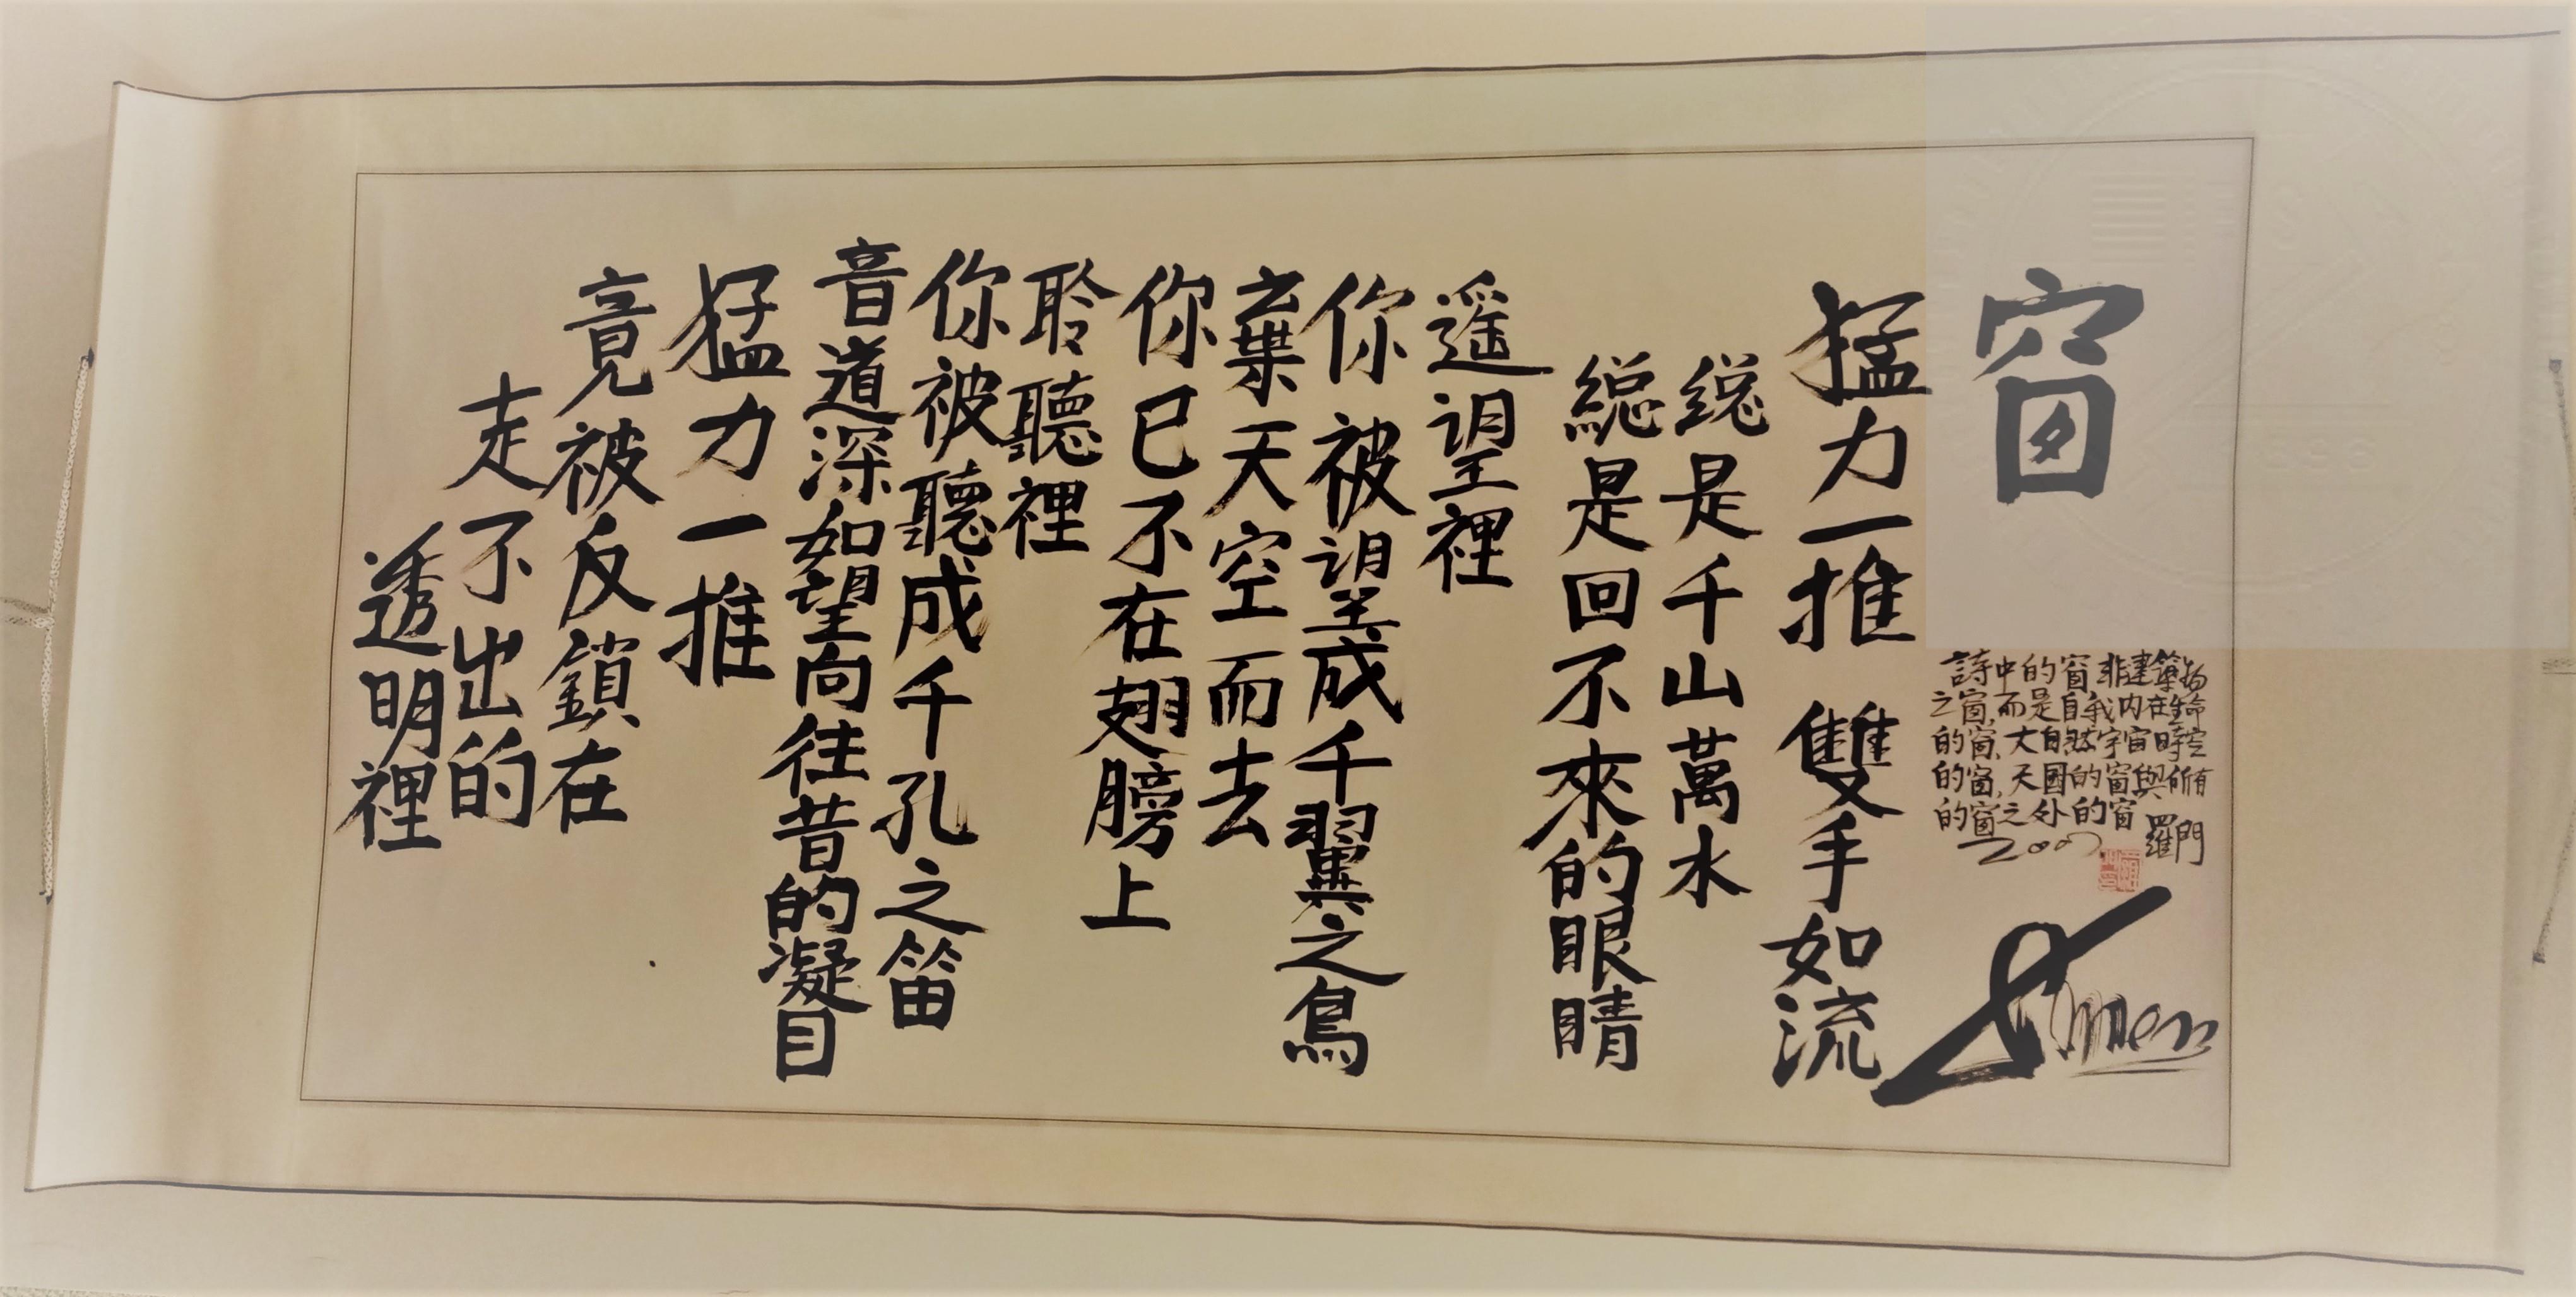 窗
詩中的窗,非建築物
之窗,而是自我內在生命
的窗、大自然宇宙時空
的窗、天國的窗與所有
的窗之外的窗 羅門
Lomen
猛力一推 雙手如流
總是千山萬水
總是回不來的眼睛
遙望裡
你被望成千翼之鳥
棄天空而去
你已不在翅膀上
聆聽裡
你被聽成千孔之笛
音道深如望向往昔的凝目
猛力一推
竟被反鎖在
走不出的
透明裡